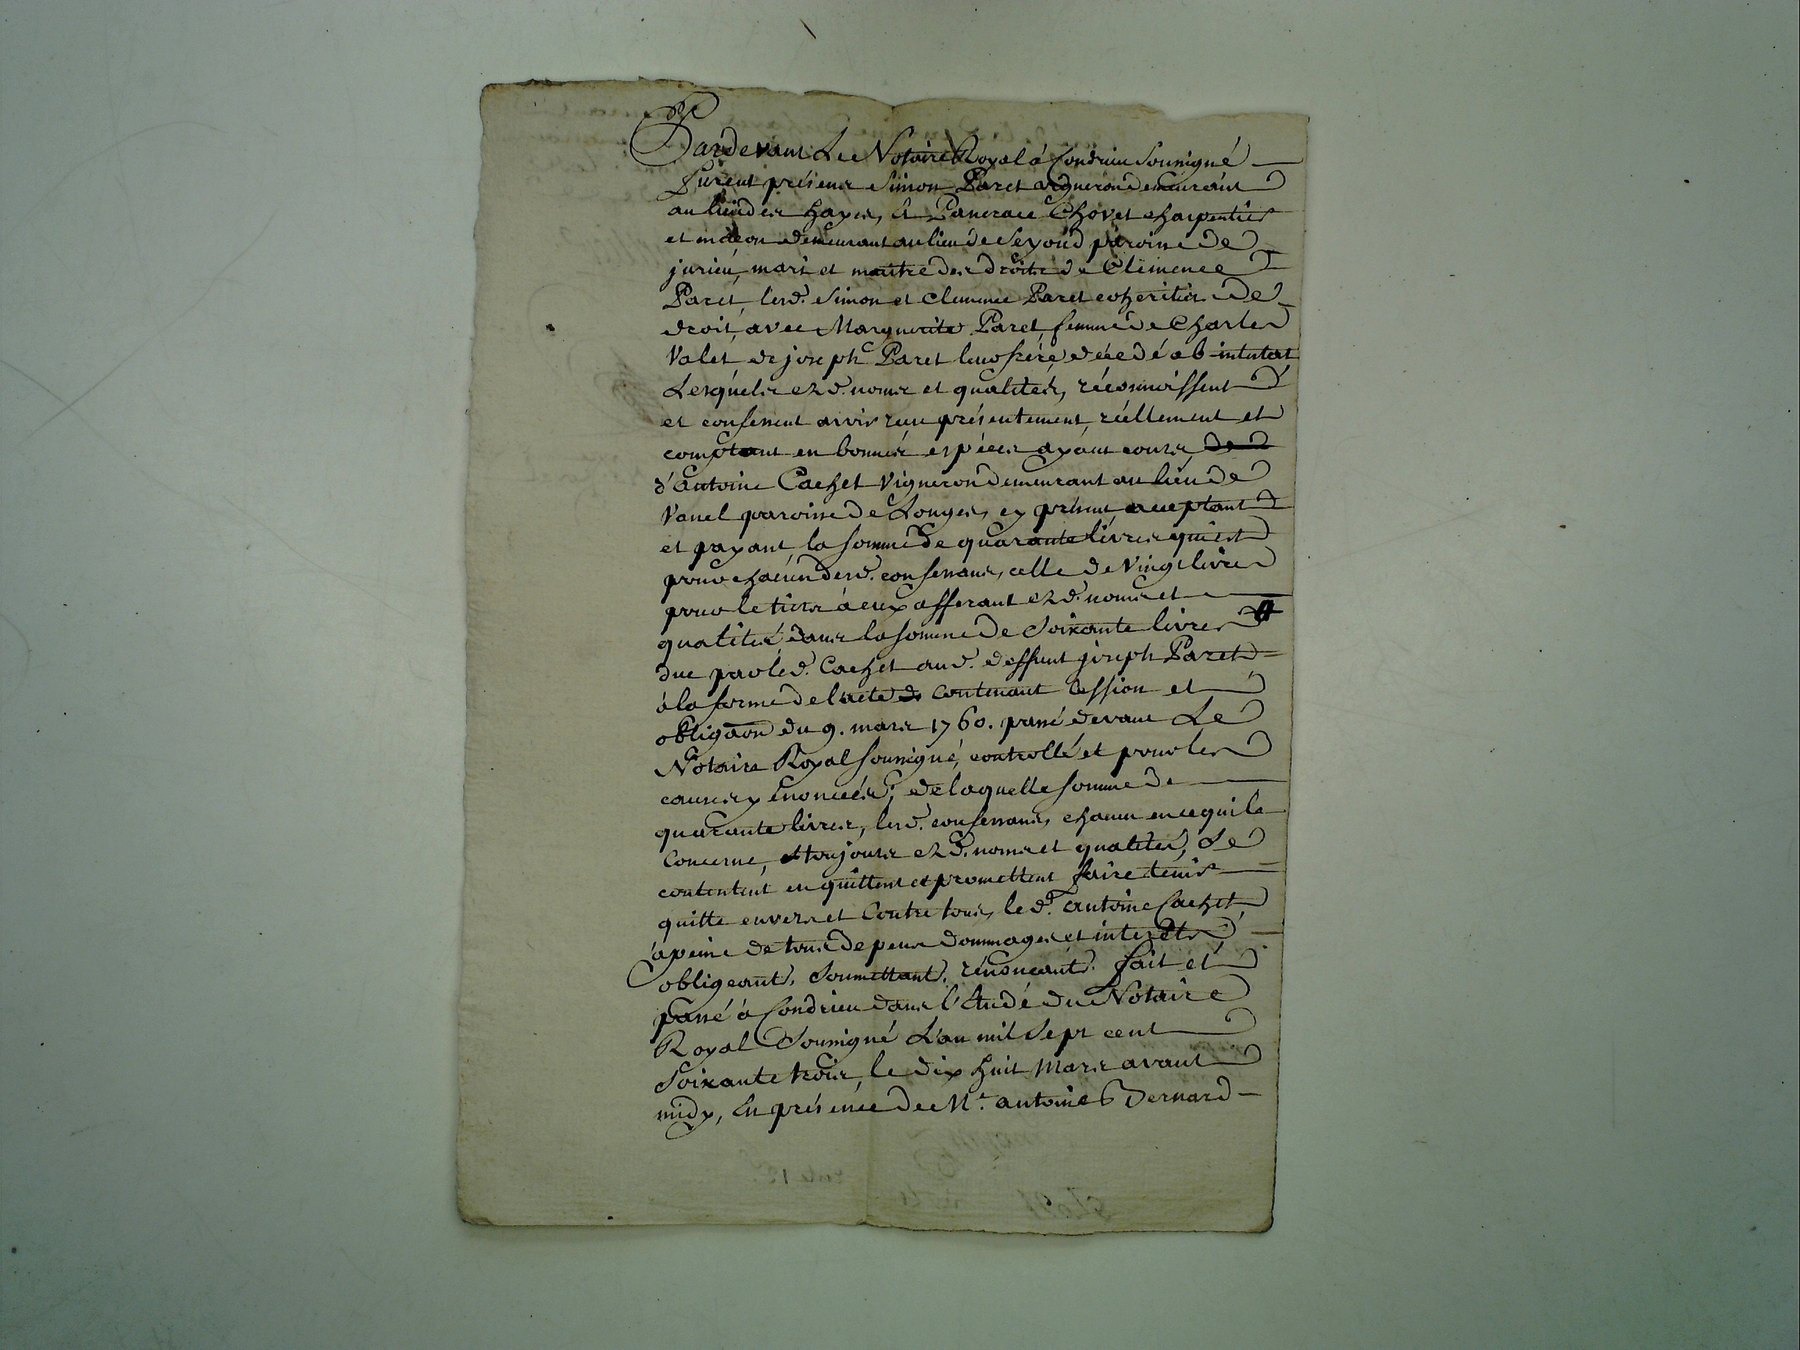 Pardevant Le Notaire Royal à Condrieu Soussigné
Furent présens Simon Paret vigneron demeurant
au lieu des hayes, & Pancrace Chovet charpentier
et maçon demeurant au lieu de Seyoud paroisse de
jurieu, mari et maitre des droits de Clémence
Paret, lesd. Simon et Clemence Paret coheritiers de
droit, avec Marguerite Paret, femme de Charles
Valet de joseph Paret leur frére, décedé ab intestat
Lesquels ezd. noms et qualités, réconnoissent
et confessent avoir reçu présentement, réellement et
comptant en bonnes espéces ayant cours,
d'Antoine Cachet Vigneron demeurant au lieu de
Vanel paroisse de Longes, cy présent acceptant
et payant, la somme de quarante livres qui est
pour chacun desd. confessans, celle de Vingt livres
pour le tiers à eux afferant ezd. noms et
qualités dans la somme de Soixante livres
due par led. Cachet aud. deffunt joseph Paret
à la forme de l'acte contenant Cession et
obligaon du 9. mars 1760. passé devant Le
Notaire Royal soussigné, controllé et pour les
causes y énoncées; de laquelle somme de
quarante livres, lesd. confessans, chacun en ce qui le
Concerne, et toujours ezd. noms et qualités, Se
contentent en quittent et promettent faire tenir
quitte envers et Contre tous, le d.t antoine Cachet,
à peine de tous depens dommages et interets
obligeant, Soumettant, rénonceant. fait et
passé à Condrieu dans l'étude du Notaire
Royal Soussigné L'an mil Sept cent
Soixante trois, le dix huit Mars avant
midy, En présence de M.e antoine Bernard